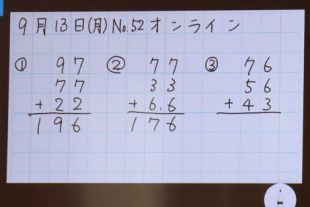 9月13日(月)No.52オンライン
① 97 ② 77 ③ 76
77 33 56
+22 +6.6 +43
196 176